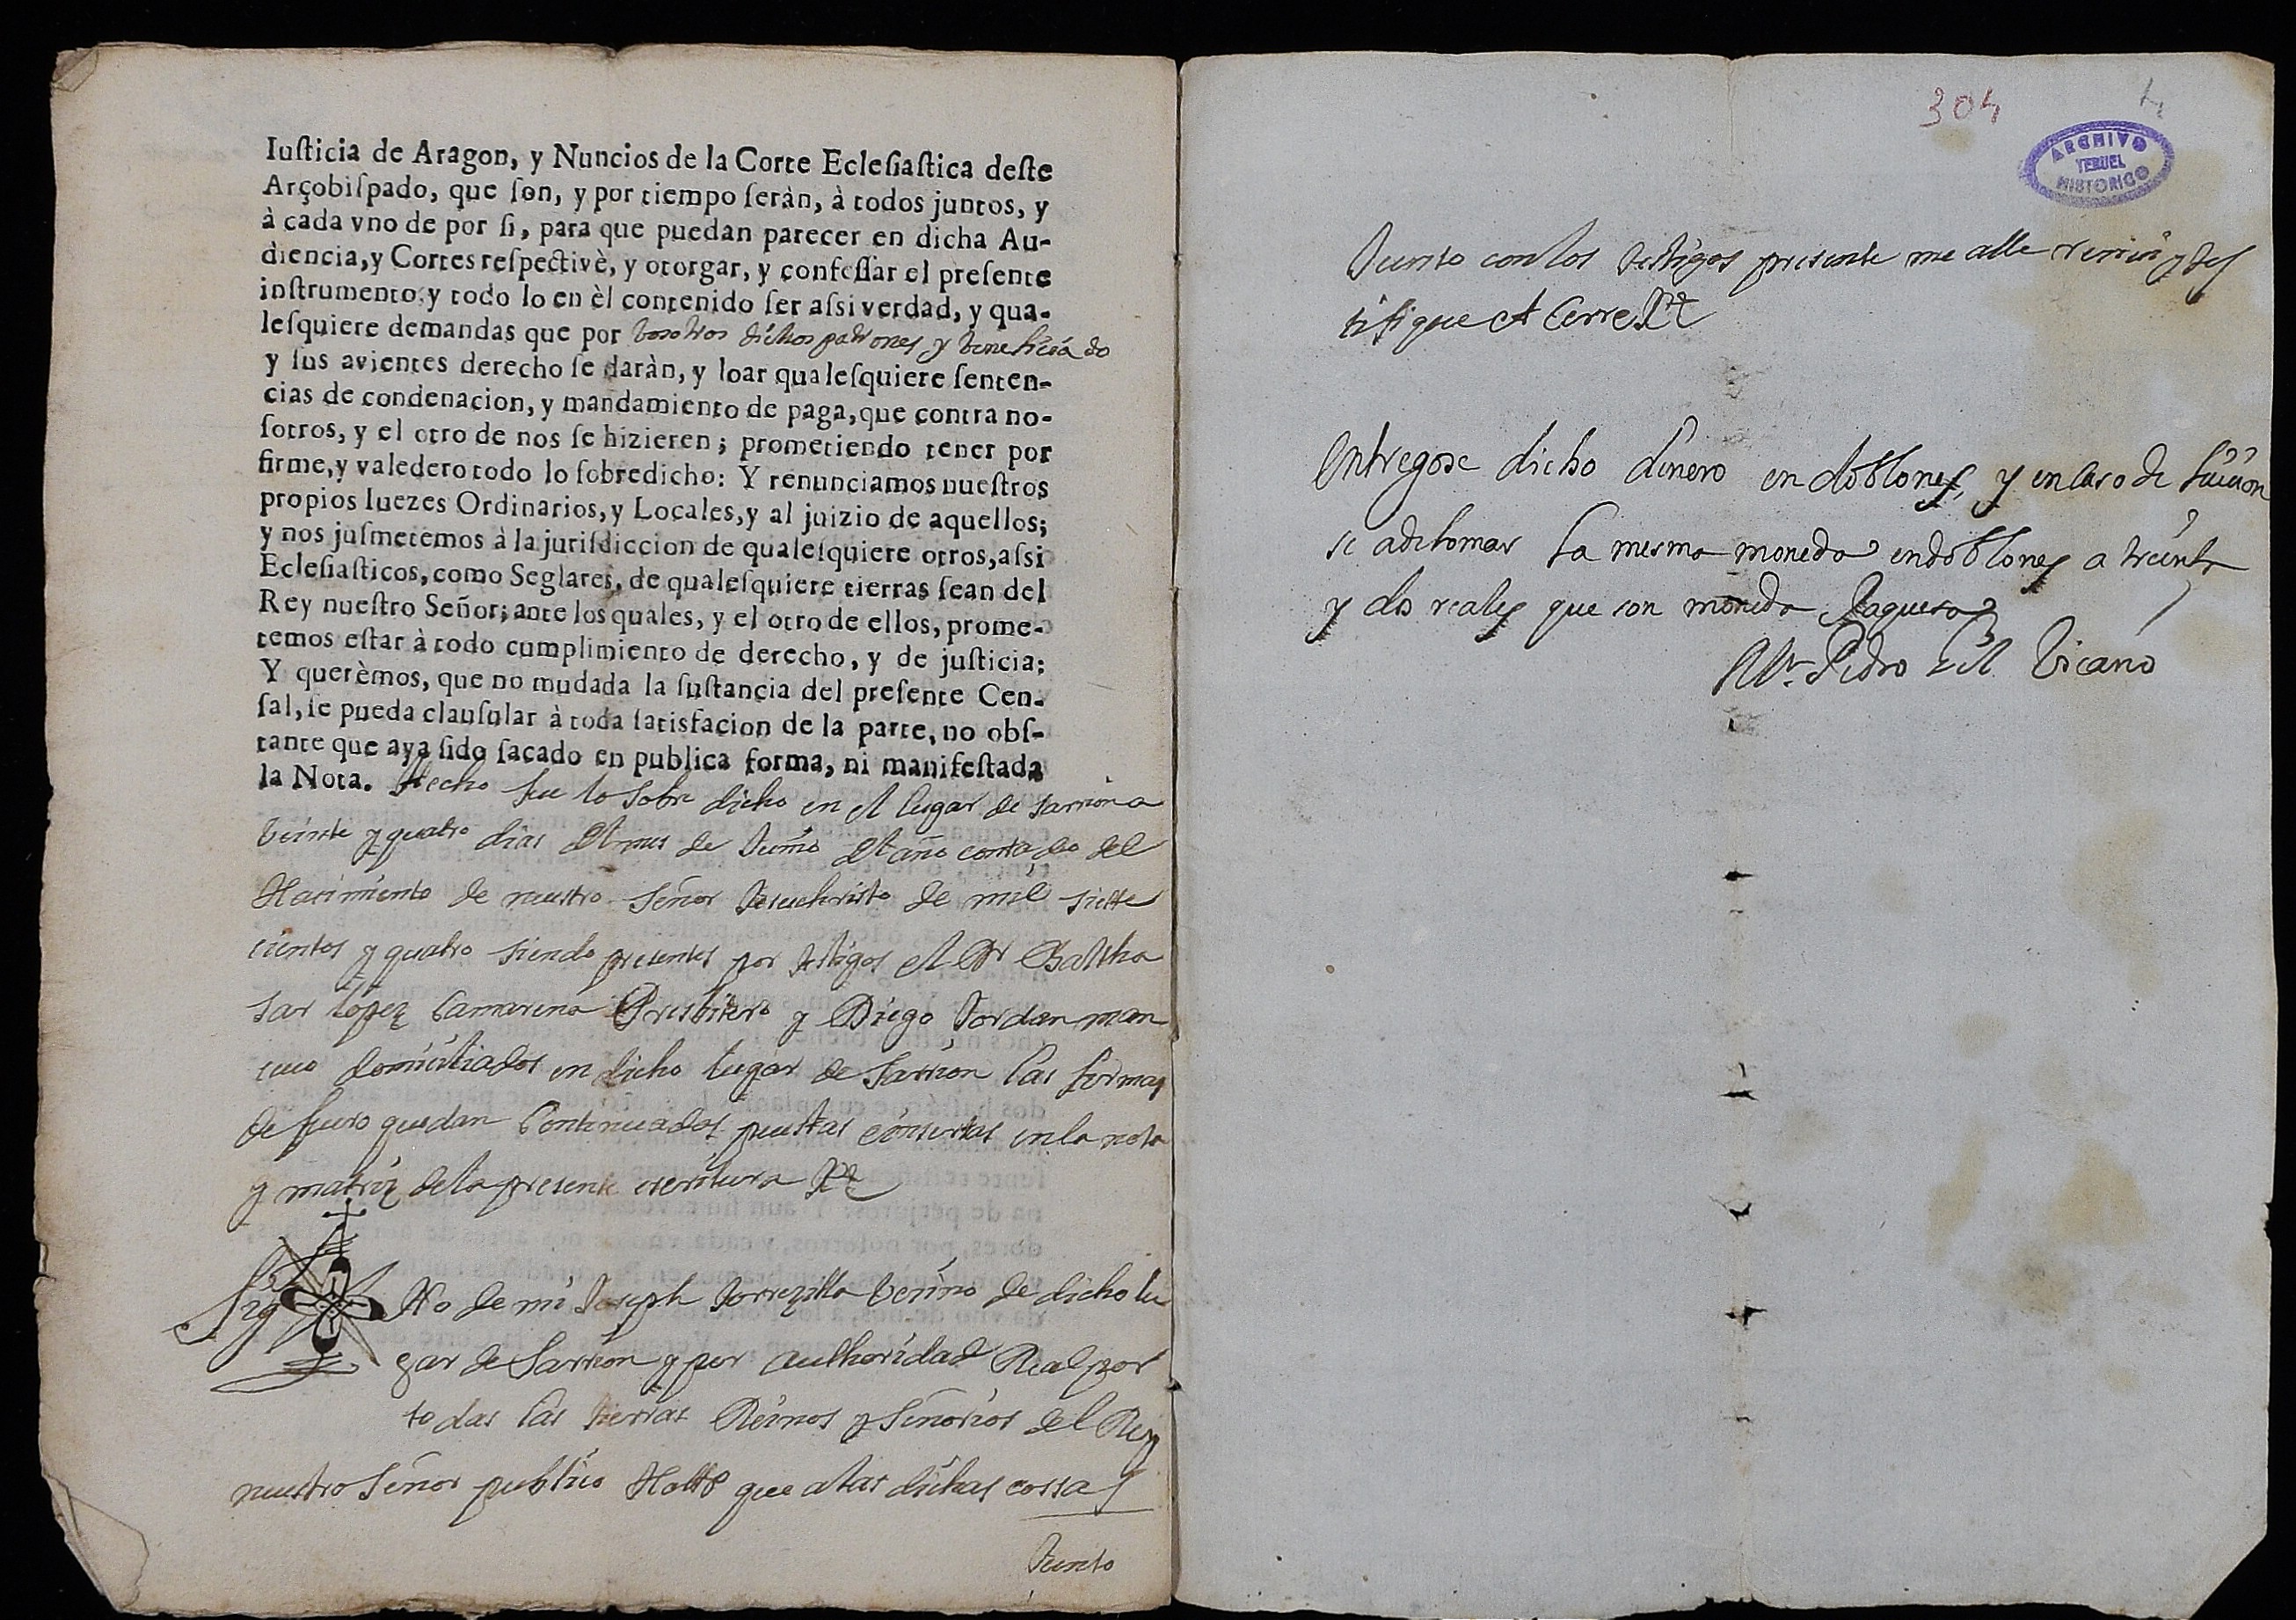 Iusticia de Aragon, y Nuncios de la Corte Eclesiastica deste
Arçobispado, que son, y por tiempo seràn, à todos juntos, y
à cada vno de por si, para que puedan parecer en dicha Au-
diencia, y Cortes respectivè, y otorgar, y confessar el presente
instrumento, y todo lo en èl contenido ser assi verdad, y qua-
lesquiere demandas que por vosotros dichos patrones y beneficiado
y sus avientes derecho se daràn, y loar qualesquiere senten-
cias de condenacion, y mandamiento de paga, que contra no-
sotros, y el otro de nos se hizieren; prometiendo tener por
firme, y valedero todo lo sobredicho: Y renunciamos nuestros
propios Iuezes Ordinarios, y Locales, y al juizio de aquellos;
y nos jusmetemos à la jurisdiccion de qualesquiere otros, assi
Eclesiasticos, como Seglares, de qualesquiere tierras sean del
Rey nuestro Señor; ante los quales, y el otro de ellos, prome-
temos estar à todo cumplimiento de derecho, y de justicia:
Y querèmos, que no mudada la sustancia del presente Cen-
sal, se pueda clausular à toda satisfacion de la parte, no obs-
tante que aya sido sacado en publica forma, ni manifestada
la Nota. Hecho fue lo sobre dicho en el lugar de Sarrion a
veinte y quatro dias del mes de Junio del año contado del
Nacimiento de nuestro Señor Jesuchristo de mil siette
cientos y quatro siendo presentes por testigos el Dr Baltha
sar Lopez Camarena Presbitero y Diego Jordan man
cuo domiciliados en dicho lugar de Sarrion las firmas
de fuero quedan Continuadas puestas e insertas en la nota
y matriz de la presente escritura
Sig No de mi Joseph Torrezilla vecino de dicho lu
gar de Sarrion y por authoridad Real por
todas las tierras Reinos y Señorios del Rey
nuestro Señor publico Notto que a las dichas cossas
Junto
304
4
ARCHIVO
TERUEL
HISTORICO
Junto con los testigos presente me alle y tes
tifique et Cerre
Entregose dicho dinero en doblones, y en caso de luicion
se a de tomar la mesma moneda en doblones a treinta
y dos reales que son moneda Jaquesa
Mn. Pedro Gil Vicario